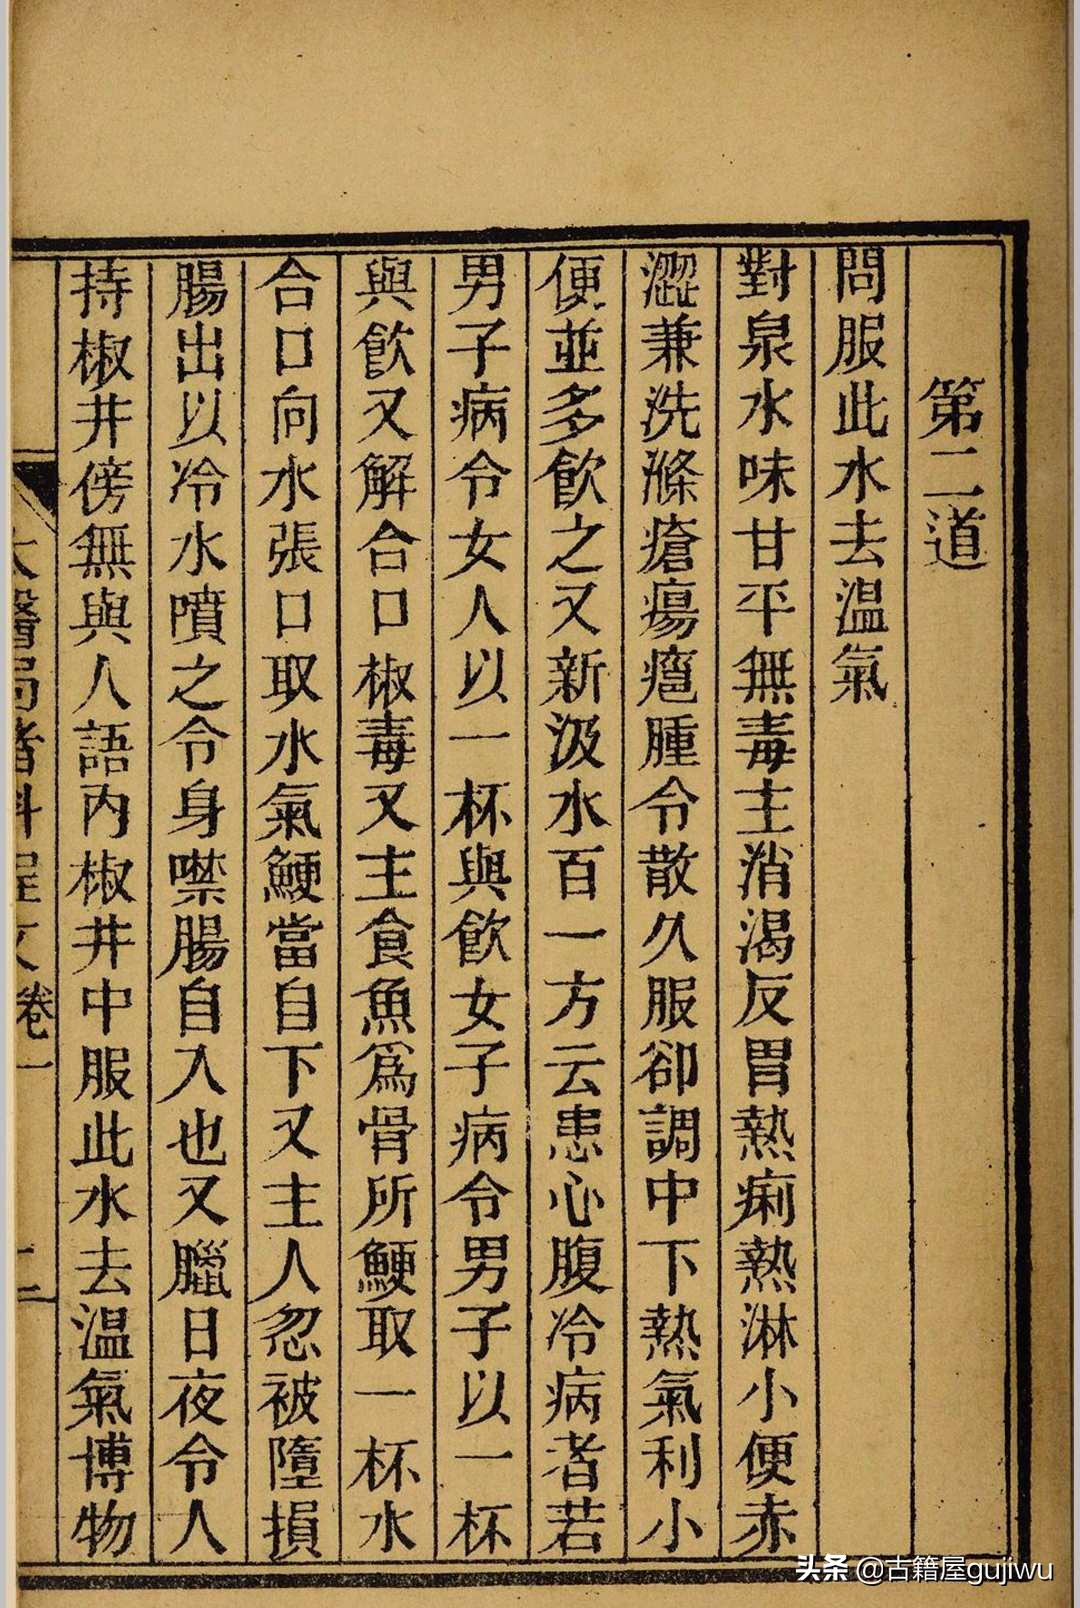 第二道
問服此水去温氣
對泉水味甘平無毒主消渴反胃熱痢熱淋小便赤
澀兼洗滌瘡瘍癰腫令散久服卻調中下熱氣利小
便並多飲之又新汲水百一方云患心腹冷病者若
男子病令女人以一杯與飲女子病令男子以一杯
與飲又解合口椒毒又主食魚爲骨所鯁取一杯水
合口向水張口取水氣鯁當自下又主人忽被墮損
腸出以冷水噴之令身噤腸自入也又臘日夜令人
持椒井傍無與人語內椒井中服此水去温氣博物
太醫局諸科程文卷一
二
头条 @古籍屋gujiwu